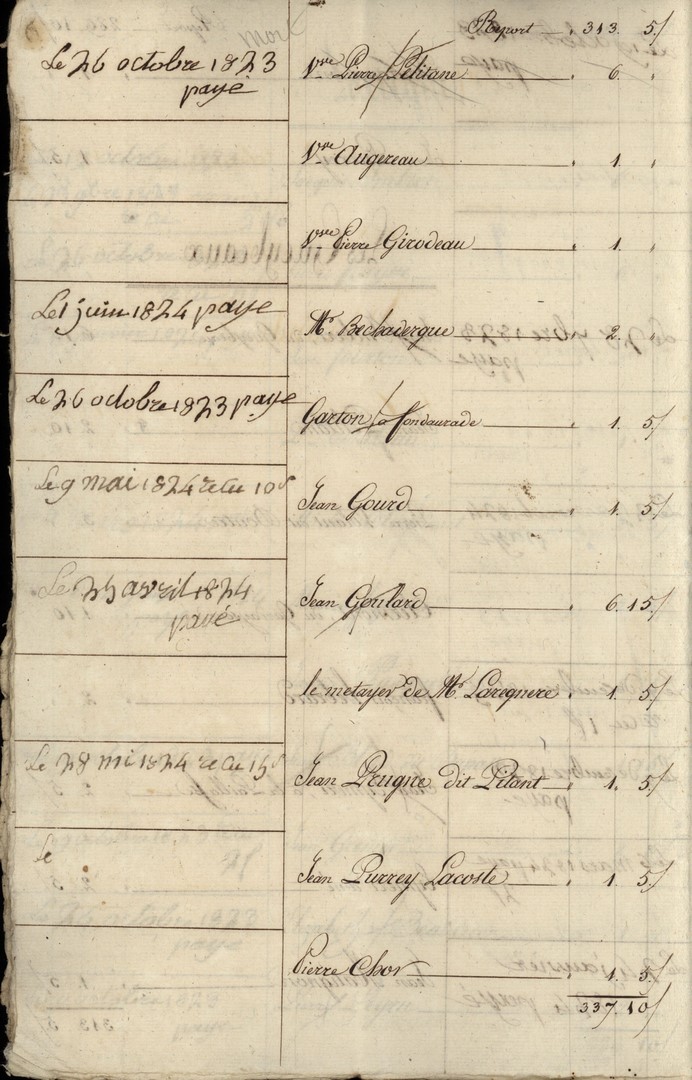 Report 313. 5/
Le 26 octobre 1823 Vve Pierre Pélitane 6. "
payé
Vve Augereau 1. "
Vve Pierre Girodeau 1. "
Le 1 juin 1824 paye Mr. Bechadergue 2. "
Le 26 octobre 1823 paye Garton la fondaurade 1. 5/
Le 9 mai 1824 recu 10s Jean Gourd 1. 5/
Le 25 avril 1824 Jean Goulard 6. 15/
payé
le metayer de Mr. Laregnere 1. 5/
Le 28 mi 1824 recu 15s Jean Peugne dit Pitant 1. 5/
Le Jean Purrey Lacoste 1. 5/
Pierre Chor 1. 5/
337. 10/